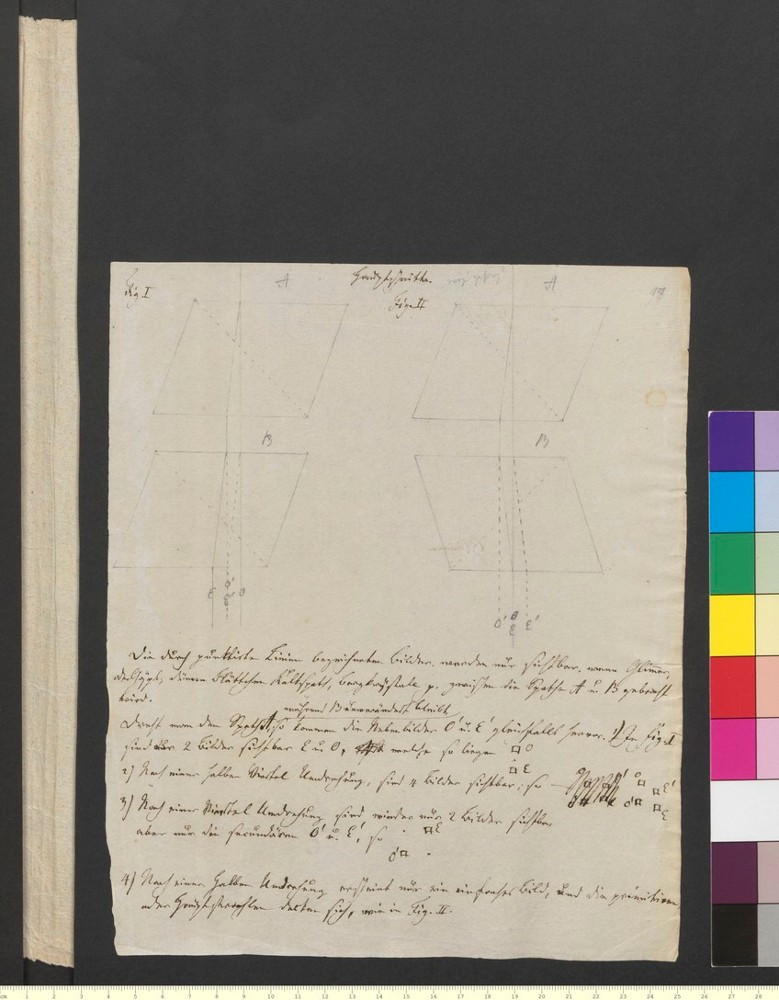 Hauptschnitte.
Fig. I
A
Fig. II
A
19
B
B
E
O'
E'
O
O'
O
E
E'
Die durch punktirte Linien bezeichneten Bilder werden nur sichtbar, wenn Glimmer,
dünne Blättchen Kalkspath, Bergkrystall p. zwischen die Spathe A u. B gebracht
wird.
während B unverändert bleibt
Dreht man den Spath A, so kommen die Nebenbilder O' u. E' gleichfalls hervor. 1) In Fig. I
sind nur 2 Bilder sichtbar E u. O, welche so liegen O
E
2) Nach einer halben Viertel Umdrehung, sind 4 Bilder sichtbar; so O E'
O' E
3) Nach einer Viertel Umdrehung sind wieder nur 2 Bilder sichtbar
aber nur die secundären O' u. E', so E'
O'
4) Nach einer halben Umdrehung erscheint nur ein einfaches Bild, und die primitiven
oder Hauptstrahlen decken sich, wie in Fig. II.